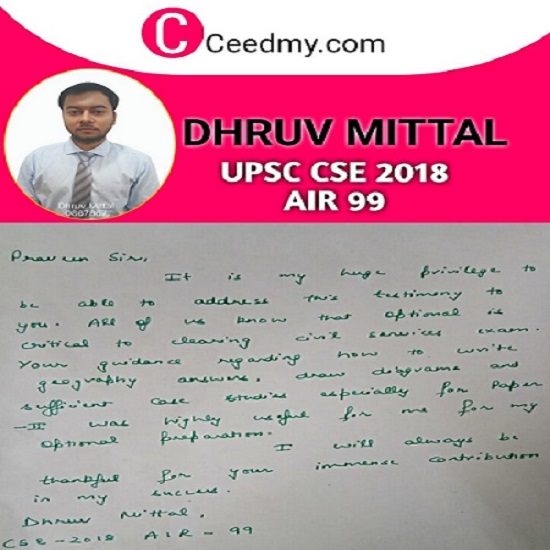 C Ceedmy.com
DHRUV MITTAL
UPSC CSE 2018
AIR 99
Dhruv Mittal
Praveen Sir,
It is my huge privilege to
be able to address this testimony to
you. All of us know that optional is
critical to clearing civil services exam.
Your guidance regarding how to write
geography answers, draw diagrams and
sufficient case studies especially for Paper
-II was highly useful for me for my
optional preparation.
I will always be
thankful for your immense contribution
in my success.
Dhruv Mittal,
CSE-2018 AIR - 99